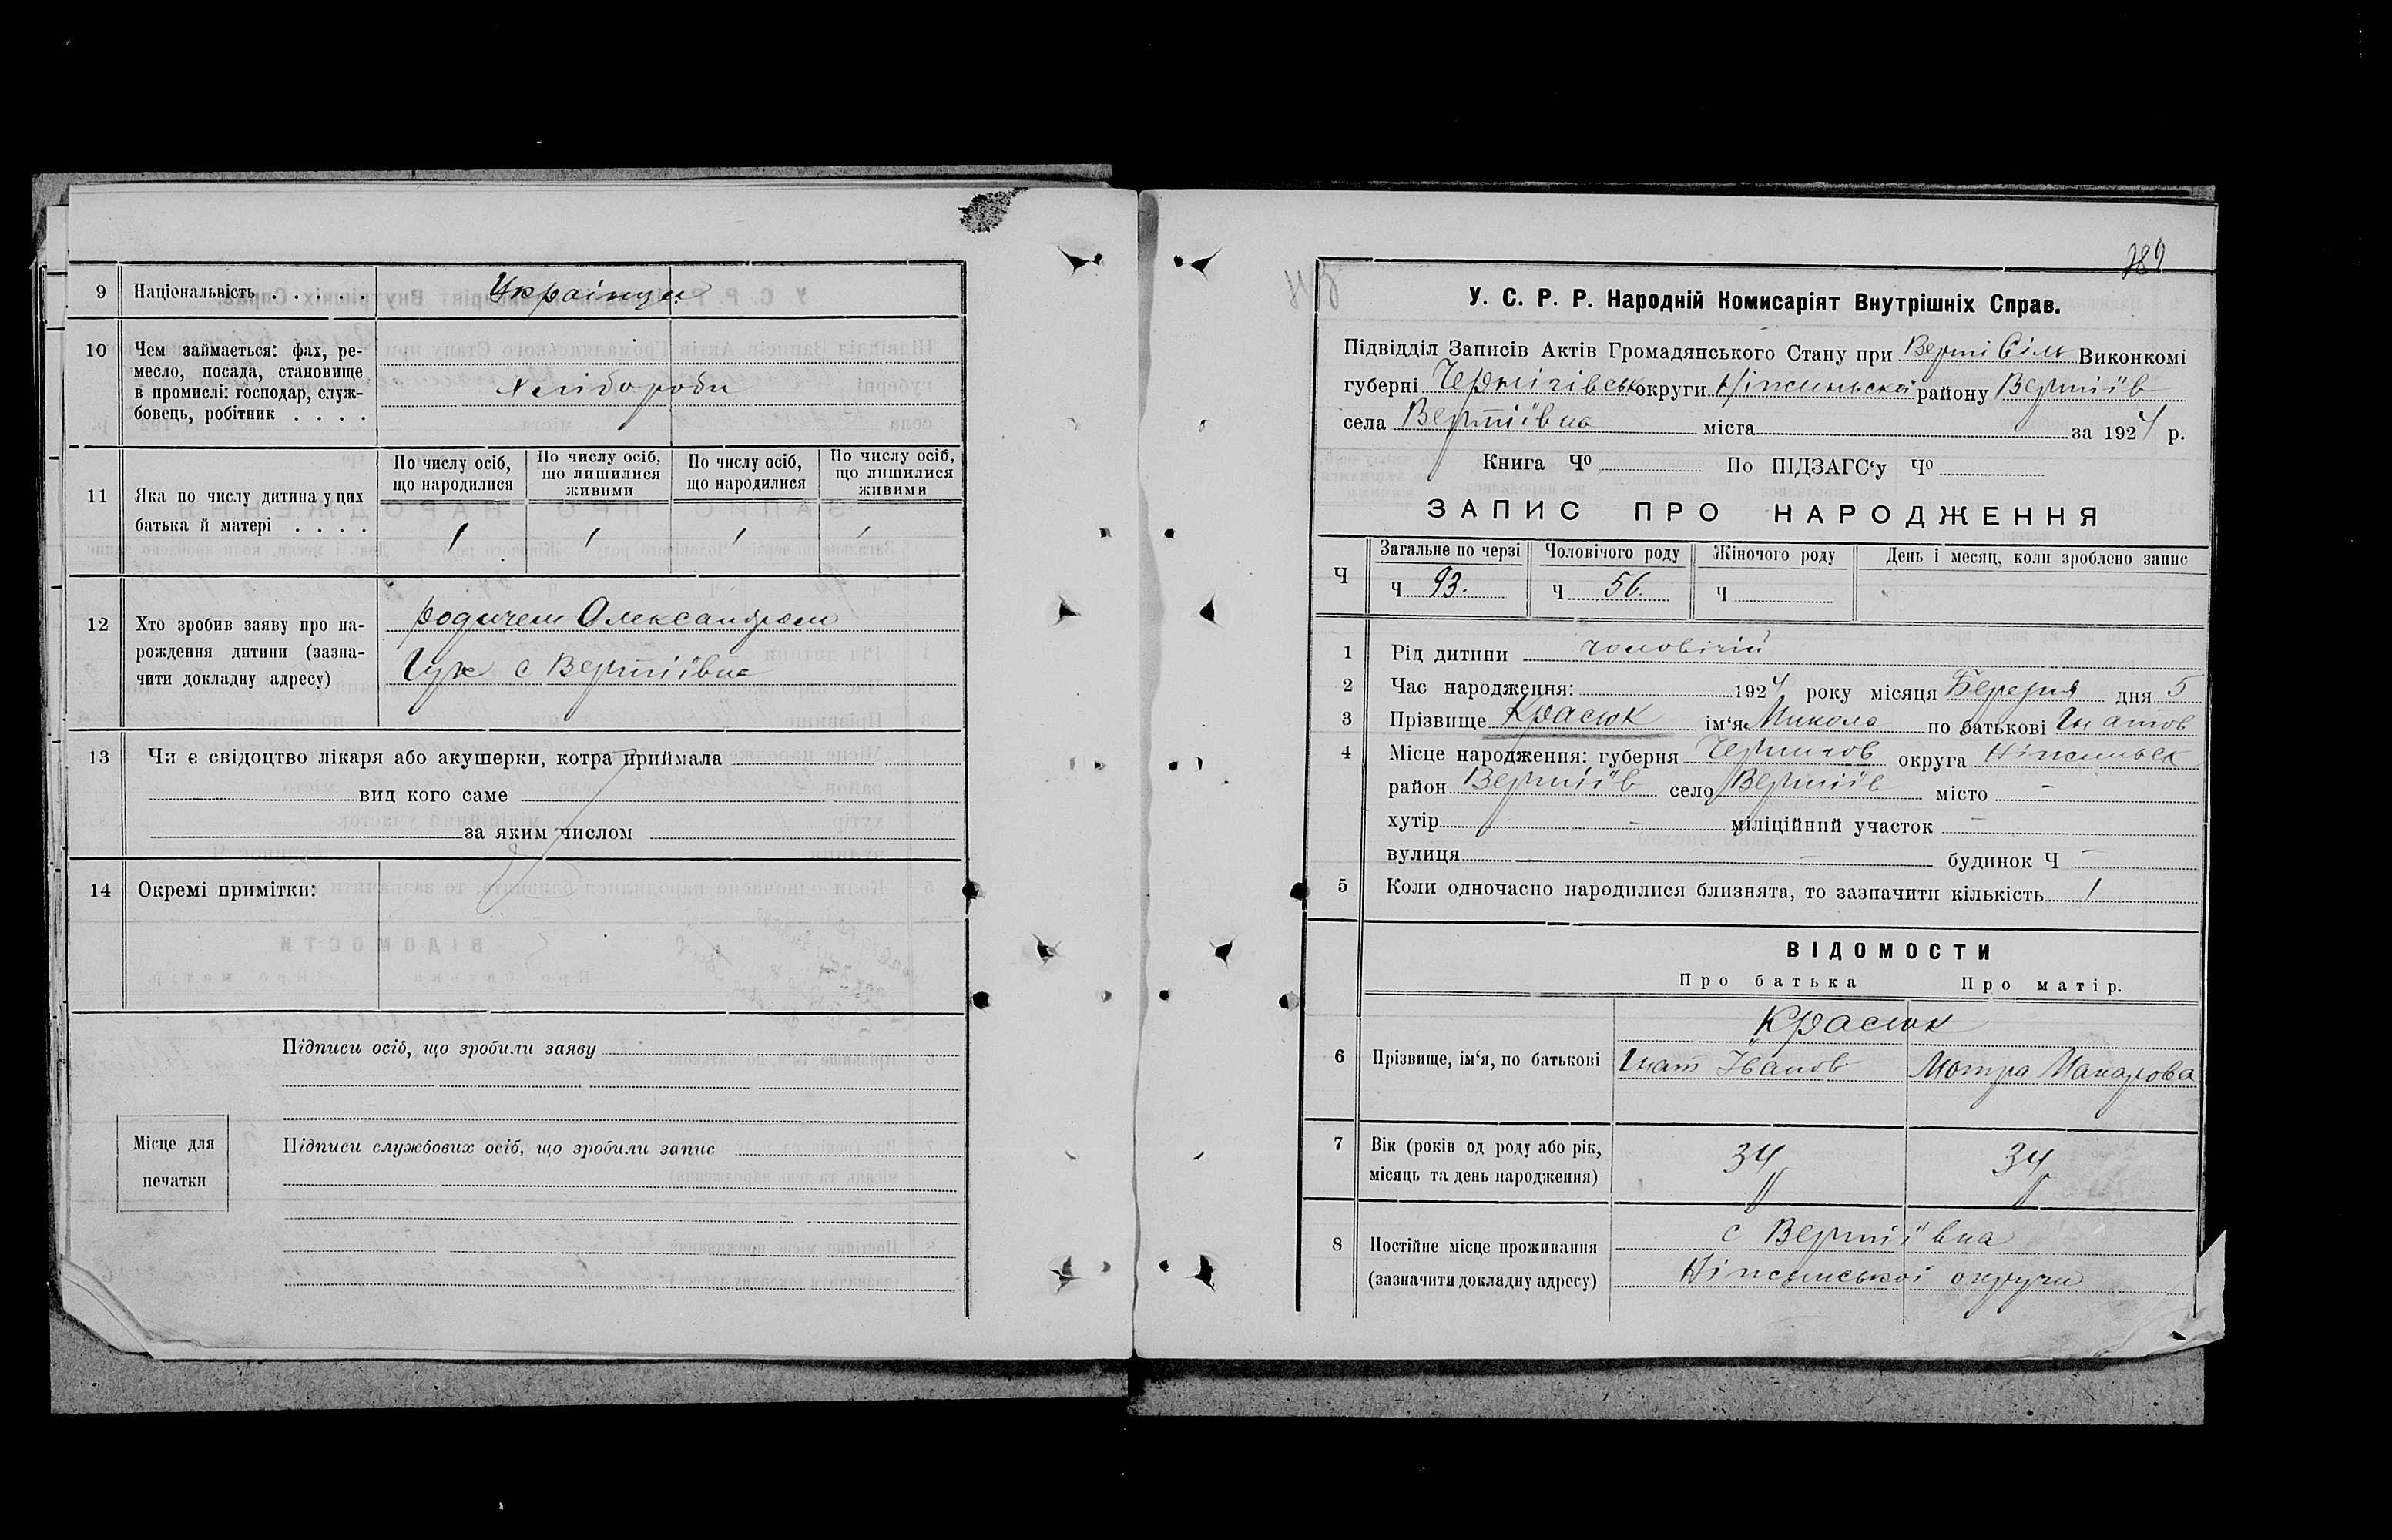 9 Національність . . . . . Українци
10 Чем займається: фах, ре-
месло, посада, становище
в промислі: господар, служ- Хлібороби
бовець, робітник . . . .
По числу осіб, що народилися По числу осіб, що лишилися живими По числу осіб, що народилися По числу осіб, що лишилися живими
11 Яка по числу дитина у цих
батька й матері . . . . 1 1 1 1
12 Хто зробив заяву про на- родичем Олександром
рождення дитини (зазна- с Вертіївка
чити докладну адресу)
13 Чи є свідоцтво лікаря або акушерки, котра приймала
вид кого саме
за яким числом
14 Окремі примітки:
Підписи осіб, що зробили заяву
Місце для
печатки
Підписи службових осіб, що зробили запис
389
У. С. Р. Р. Народній Комисаріят Внутрішніх Справ.
Підвідділ Записів Актів Громадянського Стану при Верті Сіль Виконкомі
губерні Чернігівськ округи Ніжинської району Вертіїв
села Вертіївка міста за 1924 р.
Книга Чо По ПІДЗАГС‘у Чо
ЗАПИС ПРО НАРОДЖЕННЯ
Загальне по черзі Чоловічого роду Жіночого роду День і месяц, коли зроблено запис
Ч Ч 93. Ч 56. Ч
1 Рід дитини чоловічій
2 Час народження: 1924 року місяця Березня дня 5
3 Прізвище Красюк ім‘я Микола по батькові Гнатов
4 Місце народження: губерня Чернигов округа Ніжиньск
район Вертіїв село Вертіїв місто –
хутір – міліційний участок –
вулиця – будинок Ч –
5 Коли одночасно народилися близнята, то зазначити кількість 1
ВІДОМОСТИ
Про батька Про матір.
Красюк
6 Прізвище, ім‘я, по батькові Гнат Іванов Мотра Макарова
7 Вік (років од роду або рік, 34 34
місяць та день народження)
8 Постійне місце проживання с Вертіївка
(зазначити докладну адресу) Ніжинської округи